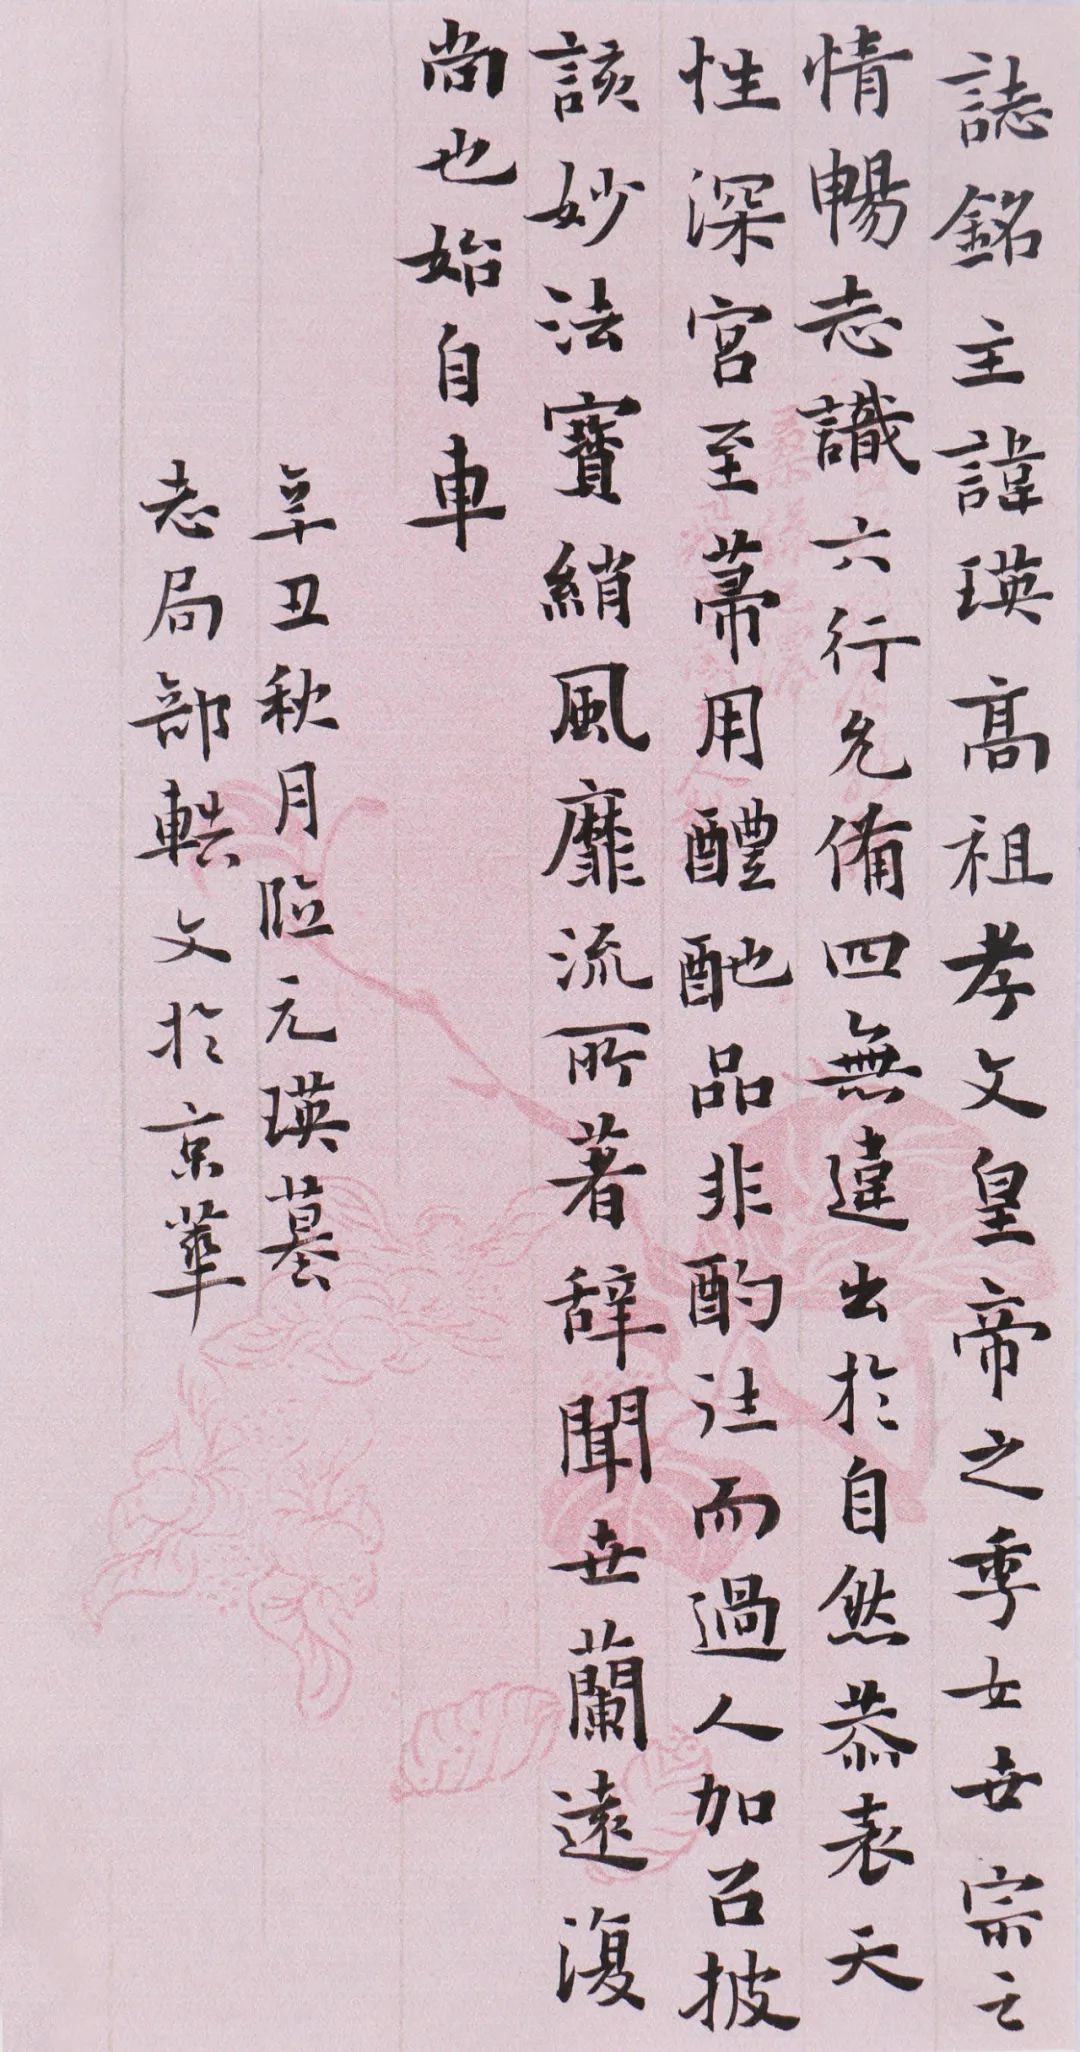 誌銘主諱瑛高祖孝文皇帝之季女世宗之
情暢志識六行允備四無違出於自然恭表天
性深宮至蒂用醴酏品非酌注而過人加召披
該妙法寶綃風靡流所著辞聞世蘭遠復
尚也始自車
辛丑秋月臨元瑛墓
志局部輅文於京華